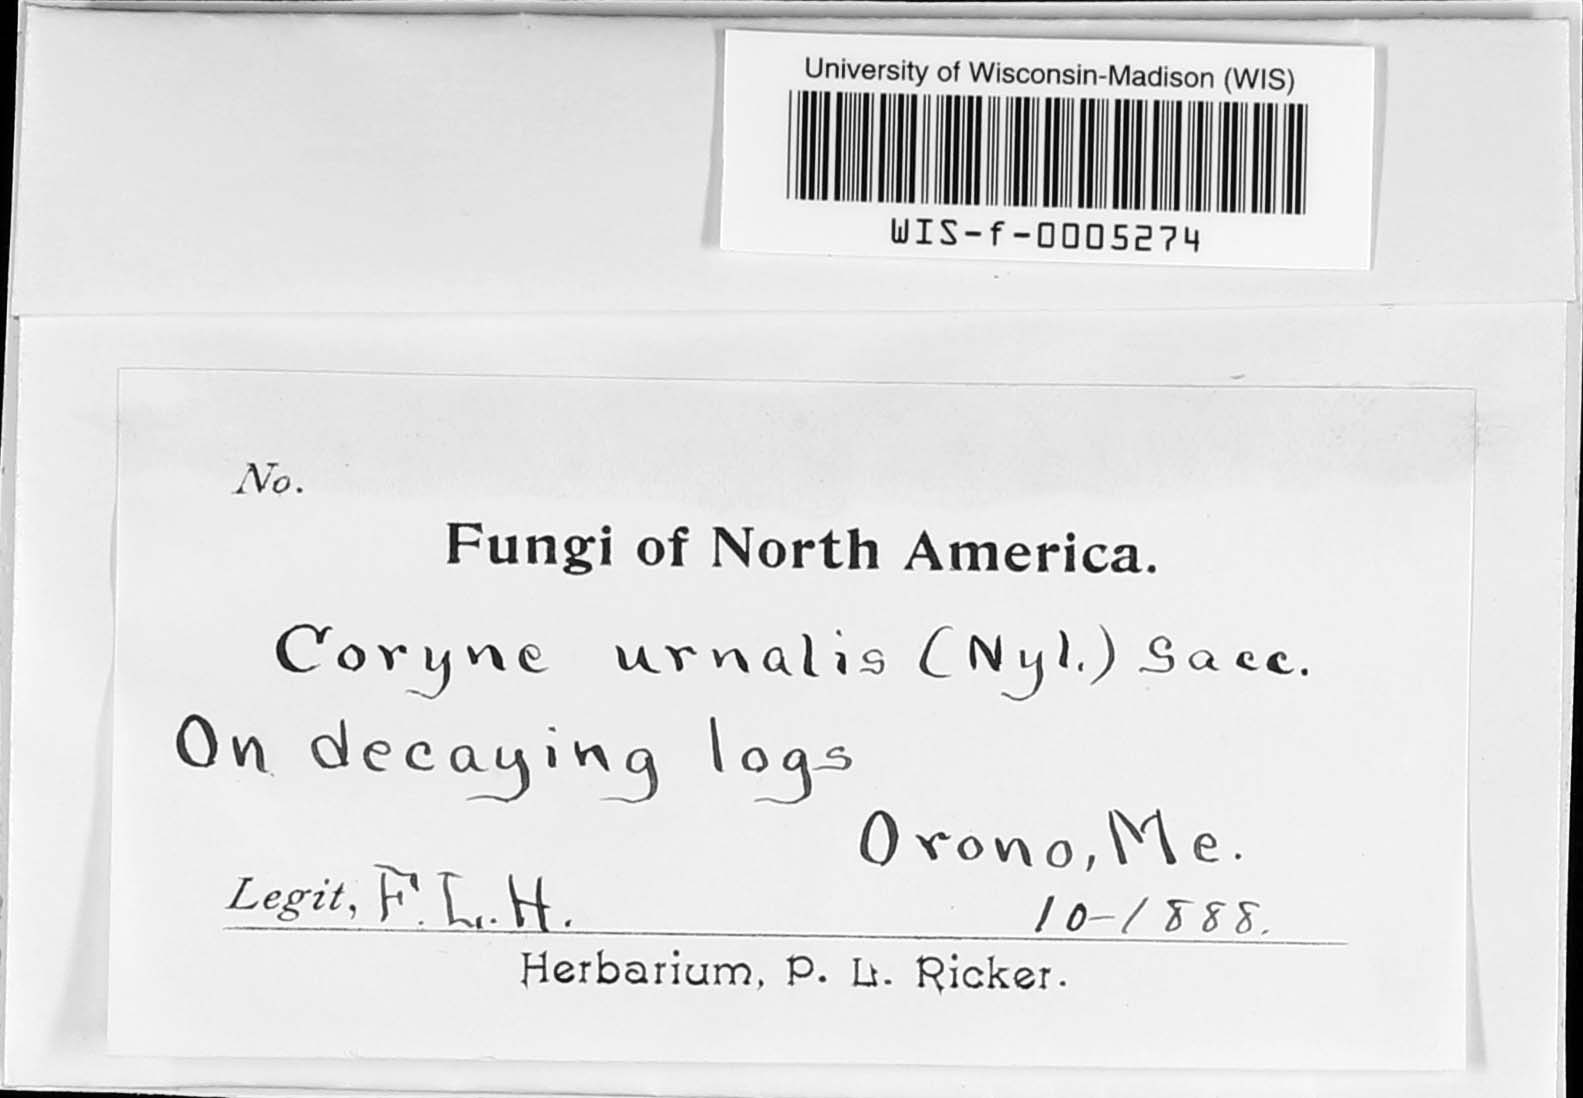 University of Wisconsin-Madison (WIS)
WIS-f-0005274
No.
Fungi of North America.
Coryne urnalis (Nyl.) Sacc.
On decaying logs
Orono, Me.
Legit, F. L. H. 10-1888.
Herbarium, P. L. Ricker.